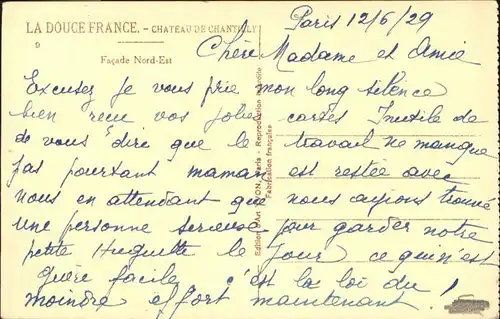 LA DOUCE FRANCE. – CHATEAU DE CHANTILLY
9
Façade Nord-Est
Paris 12/6/29
Chère Madame et Amie
Excusez je vous prie mon long silence
bien reçu vos jolies cartes Inutile de
vous dire que le travail ne manque
pas pourtant maman est restée avec
nous en attendant que nous ayions trouvé
une personne sérieuse pour garder notre
petite Huguette le jour ce qui n'est
guère facile c'est la loi du
moindre effort maintenant !
Edition d'Art Paris - Reproduction interdite
Fabrication française